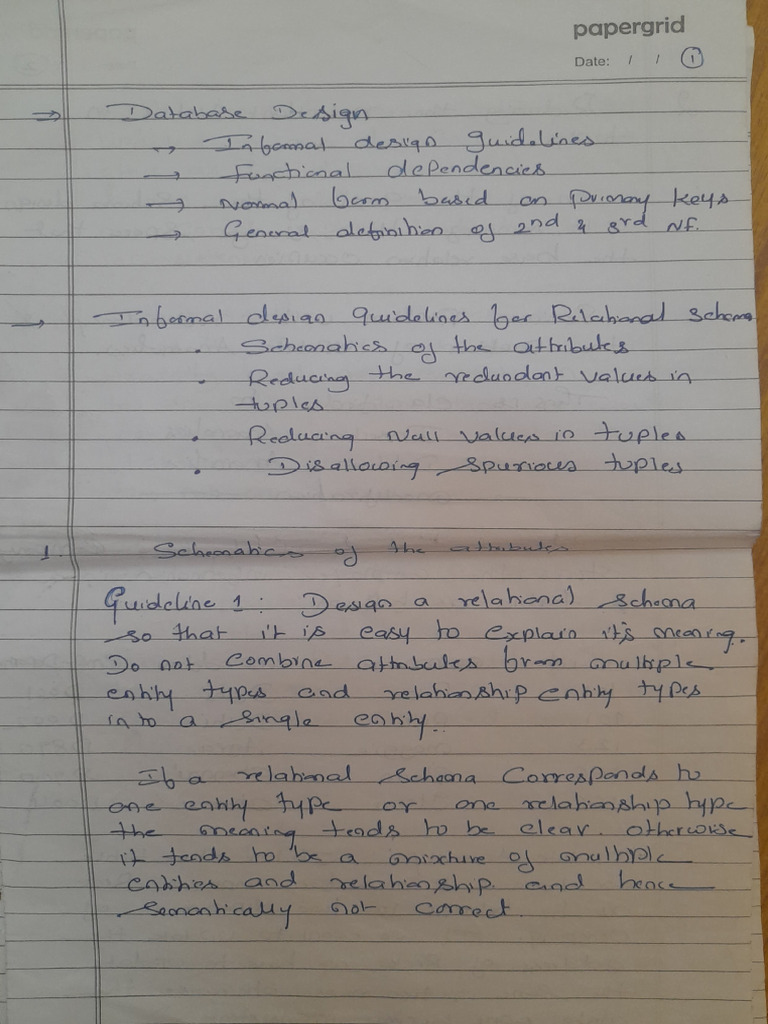 papergrid
Date: / / 1
⇒ Database Design
→ Informal design guidelines
→ Functional dependencies
→ Normal form based on primary keys
→ General definition of 2nd & 3rd NF.
→ Informal design guidelines for Relational schema
. Schematics of the attributes
. Reducing the redundant values in
tuples
. Reducing Null values in tuples
. Disallowing spurious tuples
1. Schematics of the attributes
Guideline 1: Design a relational schema
so that it is easy to explain it's meaning.
Do not combine attributes from multiple
entity types and relationship entity types
in to a single entity.
If a relational schema corresponds to
one entity type or one relationship type
the meaning tends to be clear. otherwise
it tends to be a mixture of multiple
entities and relationship and hence
semantically not correct.